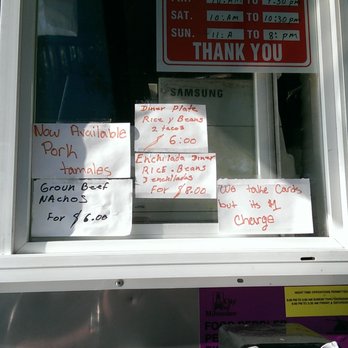 SAT. 10: AM TO 10:30 PM
SUN. 11: A TO 8: PM
THANK YOU
SAMSUNG
Diner Plate
Rice y Beans
2 tacos
$ 6:00
Now Available
Pork
tamales
Enchilada Diner
RICE . Beans
3 enchiladas
For $ 8.00
Groun Beef
NAchos
For $ 6.00
We take Cards
but its $1
Charge
City
Milwaukee